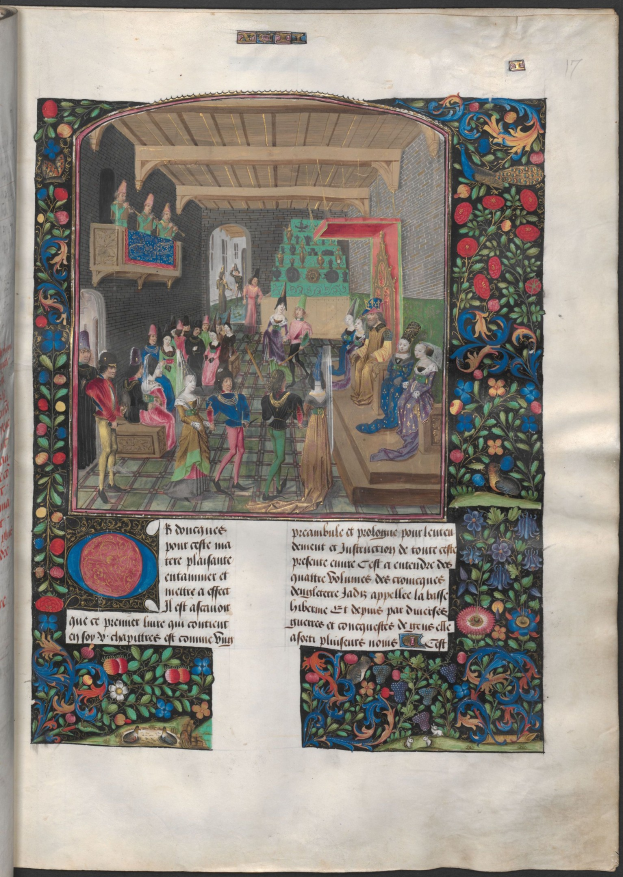 17
Or doncques
pour ceste ma
tere plaisante
entammer et
mettre a effect
Il est ascavoir
que ce premier livre qui contient
en soy v. chapitres est comme Ung
preambule et prologue pour lenten
dement et Instruction de toute ceste
presente euvre Cest a entendre des
quattre volumes des cronicques
dengleterre Jadis appellee la basse
Et depuis par diverses
guerres et concquestes de gens elle
a sorti plusieurs noms Cest